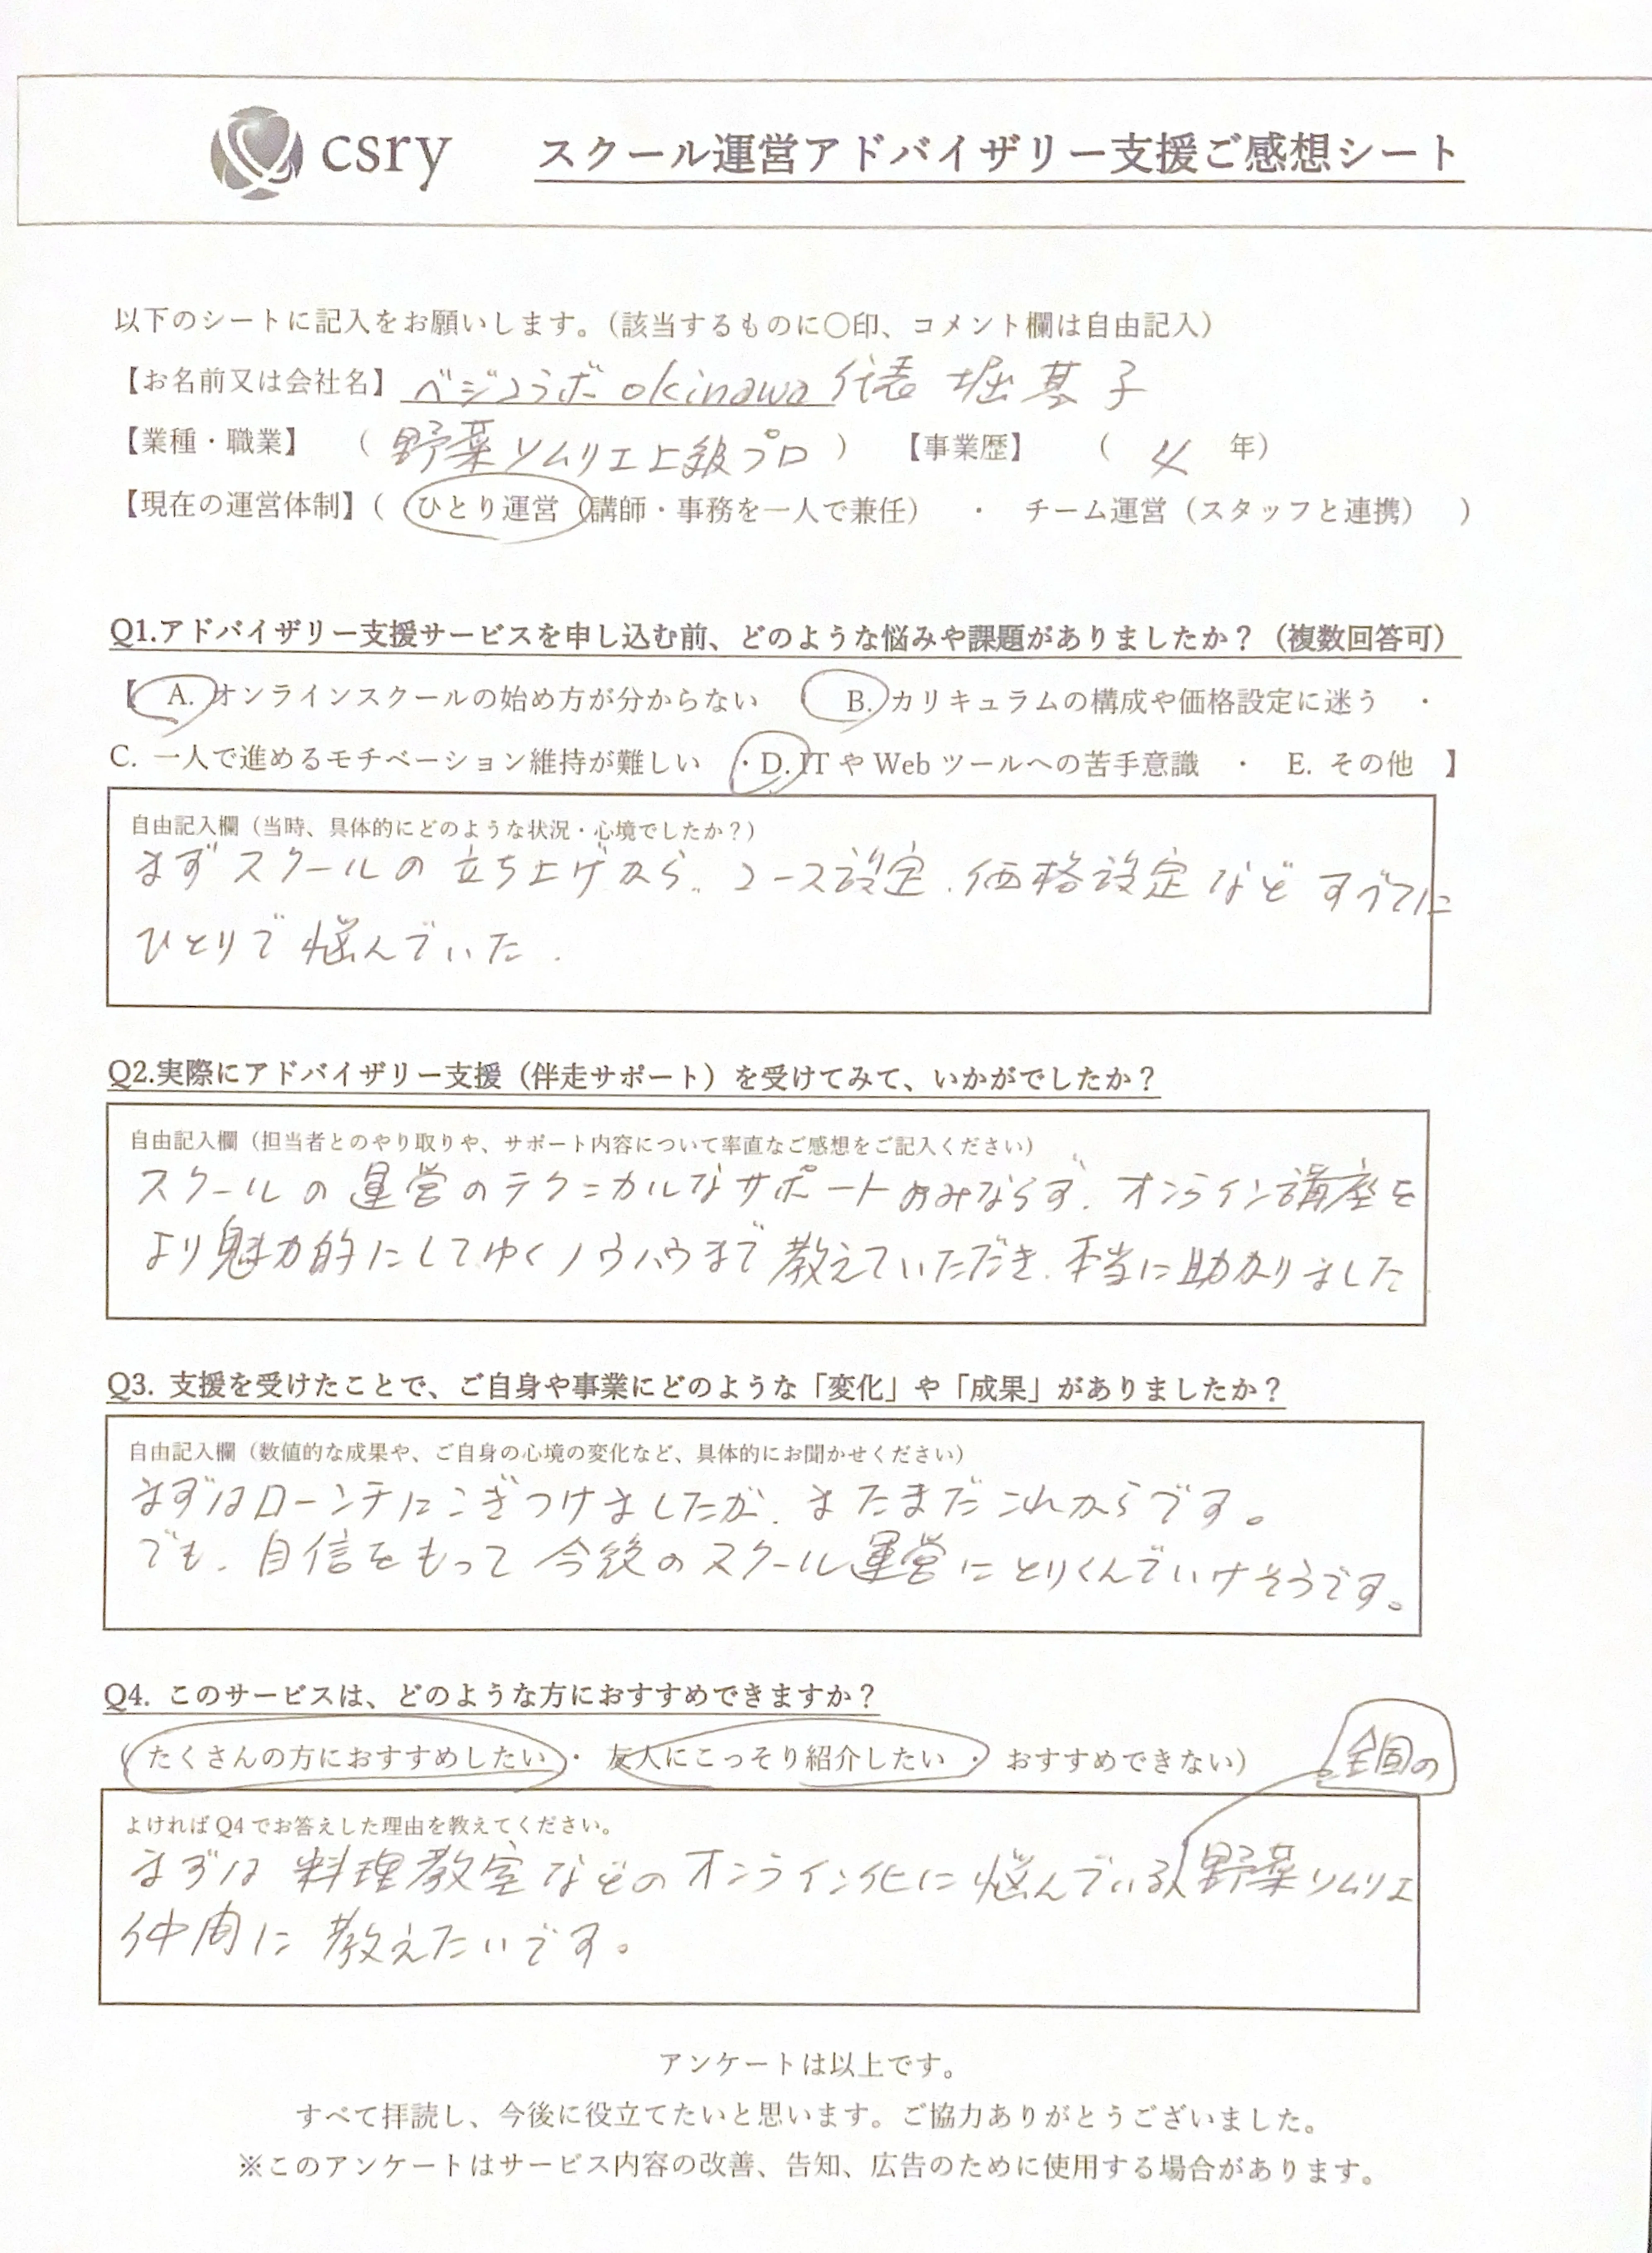 csry スクール運営アドバイザリー支援ご感想シート
以下のシートに記入をお願いします。（該当するものに〇印、コメント欄は自由記入）
【お名前又は会社名】 ベジコラボ okinawa 代表 堀 基子
【業種・職業】 （ 野菜ソムリエ上級プロ ） 【事業歴】 （ 年）
【現在の運営体制】（ ひとり運営（講師・事務を一人で兼任） ・ チーム運営（スタッフと連携） ）
Q1.アドバイザリー支援サービスを申し込む前、どのような悩みや課題がありましたか？（複数回答可）
【 A. オンラインスクールの始め方が分からない B. カリキュラムの構成や価格設定に迷う ・
C. 一人で進めるモチベーション維持が難しい ・D. IT や Web ツールへの苦手意識 ・ E. その他 】
自由記入欄（当時、具体的にどのような状況・心境でしたか？）
まずスクールの立ち上げから、コース設定、価格設定など すべてに
ひとりで悩んでいた.
Q2.実際にアドバイザリー支援（伴走サポート）を受けてみて、いかがでしたか？
自由記入欄（担当者とのやり取りや、サポート内容について率直なご感想をご記入ください）
スクールの運営のテクニカルなサポートのみならず、オンライン講座を
より魅力的にしてゆくノウハウまで教えていただき、本当に助かりました
Q3. 支援を受けたことで、ご自身や事業にどのような「変化」や「成果」がありましたか？
自由記入欄（数値的な成果や、ご自身の心境の変化など、具体的にお聞かせください）
まずはローンチにこぎつけましたが、まだまだこれからです。
でも、自信をもって今後のスクール運営にとりくんでいけそうです。
Q4. このサービスは、どのような方におすすめできますか？
（たくさんの方におすすめしたい ・ 友人にこっそり紹介したい ・ おすすめできない） 全国の
よければ Q4 でお答えした理由を教えてください。
まずは料理教室などのオンライン化に悩んでいる野菜ソムリエ
仲間に教えたいです。
アンケートは以上です。
すべて拝読し、今後に役立てたいと思います。ご協力ありがとうございました。
※このアンケートはサービス内容の改善、告知、広告のために使用する場合があります。